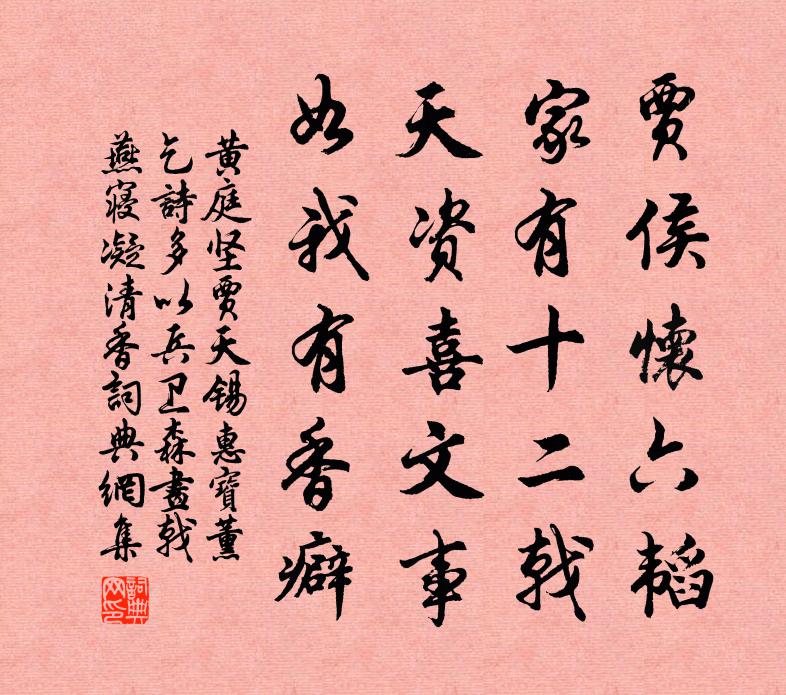 贾侯懷六韬
家有十二戟
天资喜文事
如我有香癖
黄庭坚贾天锡惠寶薰
乞詩多以兵卫森畫戟
燕寝凝清香詞典網集
詞典
网印